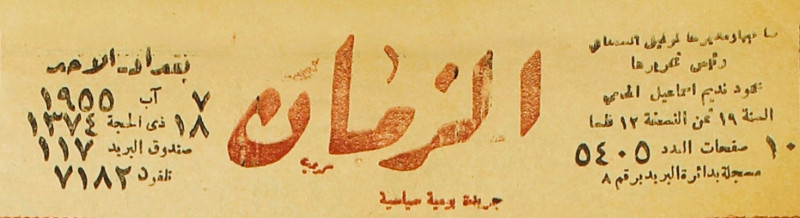 صاحبها ومديرها توفيق السمعاني
رئيس تحريرها
محمود نديم اسماعيل
السنة ١٩ ثمن النسخة ١٢ فلسا
١٠ صفحات العدد ٥٤٠٥
مسجلة بدائرة البريد برقم ٨
الزمان
جريدة يومية سياسية
بغداد الاحد
٧ آب ١٩٥٥
١٨ ذى الحجة ١٣٧٤
صندوق البريد ١١٧
تلفون ٧١٨٢